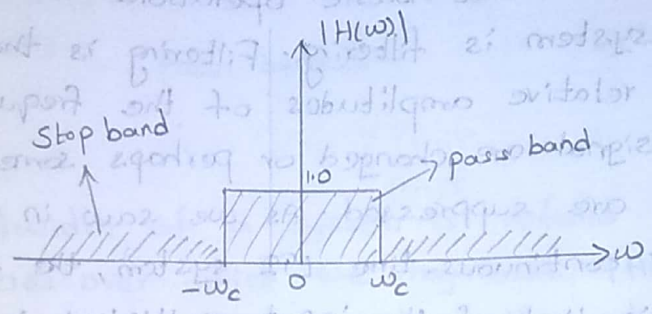 |H(ω)|
Stop band
pass band
1.0
ω
-ωc
0
ωc